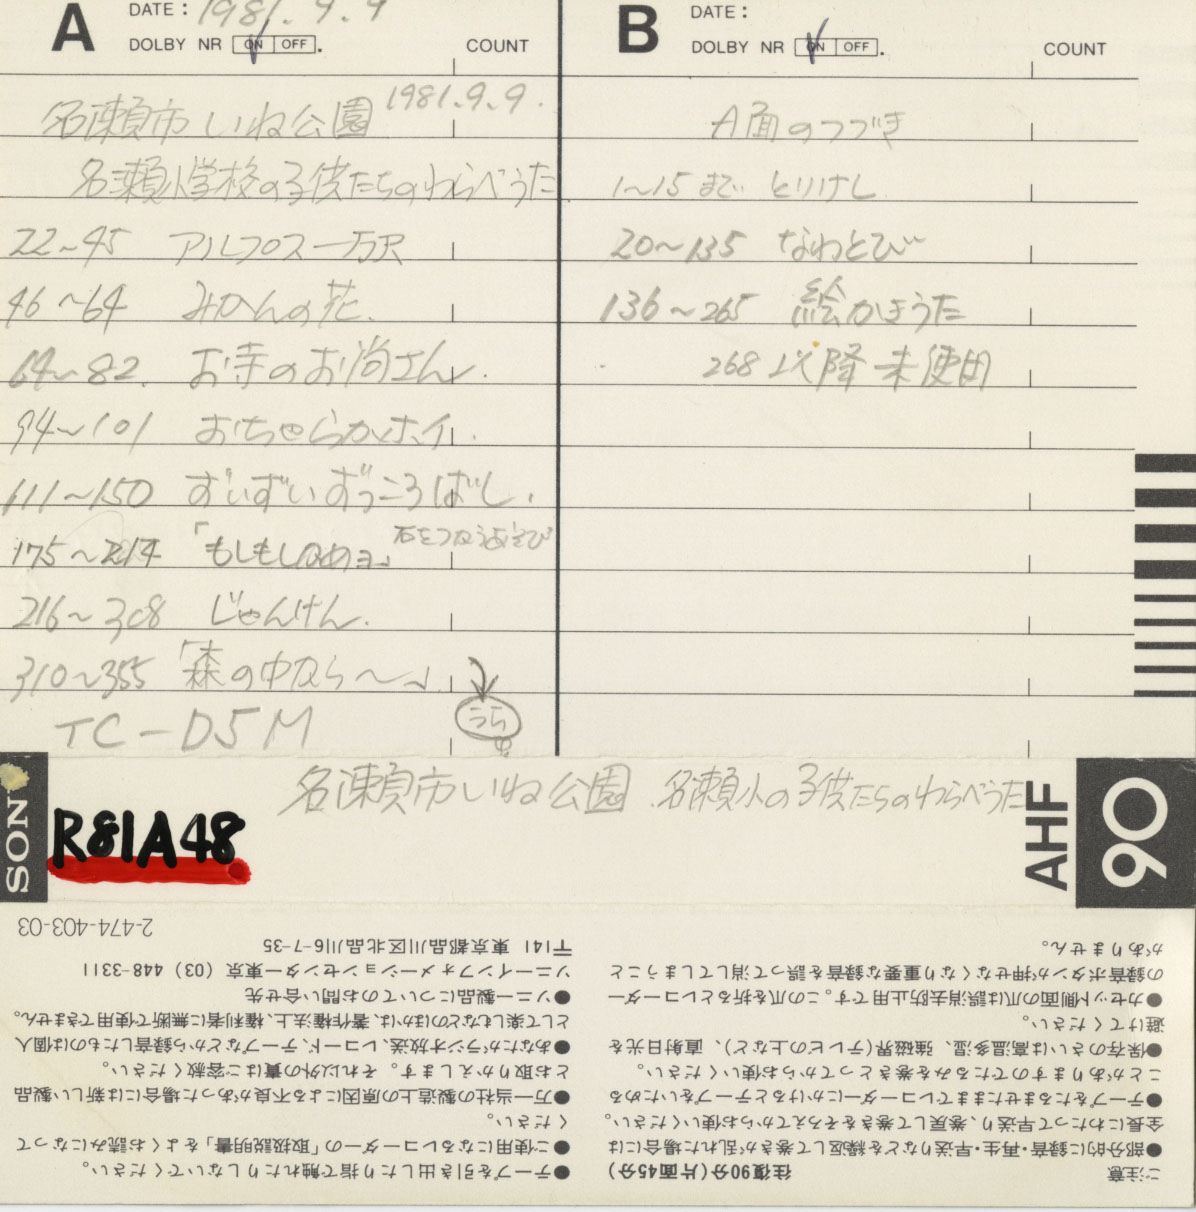 A DATE: 1981.9.9
DOLBY NR ON OFF. COUNT
名瀬市いね公園 1981.9.9.
名瀬小学校の子供たちのわらべうた
22~45 アルプス一万尺
46~64 みかんの花.
64~82. お寺のお尚さん.
94~101 おちゃらかホイ.
111~150 ずいずいずっころばし.
175~214 「もしもしかめヨ」
216~308 じゃんけん.
310~355 「森の中なら~」
TC-D5M うら
B DATE:
DOLBY NR ON OFF. COUNT
A面のつづき
1~15まで とりけし
20~135 なわとび
136~265 絵かきうた
268以降未使用
名瀬市いね公園 名瀬小の子供たちのわらべうた
SONY
R81A48
AHF 90
ご注意 往復90分(片面45分)
●部分的に録音・再生・早送りなどを繰返して巻きが乱れた場合には
全長にわたって早送り、巻戻して巻きをそろえてからお使いください。
●テープをたるませたままでレコーダーにかけるとテープをいためる
ことがありますのでたるみを巻きとってからお使いください。
●保存のさいは高温多湿、強磁界(テレビの上など)、直射日光を
避けてください。
●カセット側面の爪は誤消去防止用です。この爪を折るとレコーダー
の録音ボタンが押せなくなり重要な録音を誤って消してしまうこと
がありません。
●テープを引き出したり指で触れたりしないでください。
●ご使用になるレコーダーの「取扱説明書」をよくお読みになって
ください。
●万一当社の製造上の原因による不良があった場合には新しい製品
とお取りかえします。それ以外の責はご容赦ください。
●あなたがラジオ放送、レコード、テープなどから録音したものは個人
として楽しむなどのほかは、著作権法上、権利者に無断で使用できません。
●ソニー製品についてのお問い合せ先
ソニーインフォメーションセンター東京 (03) 448-3311
〒141 東京都品川区北品川6-7-35
2-474-403-03